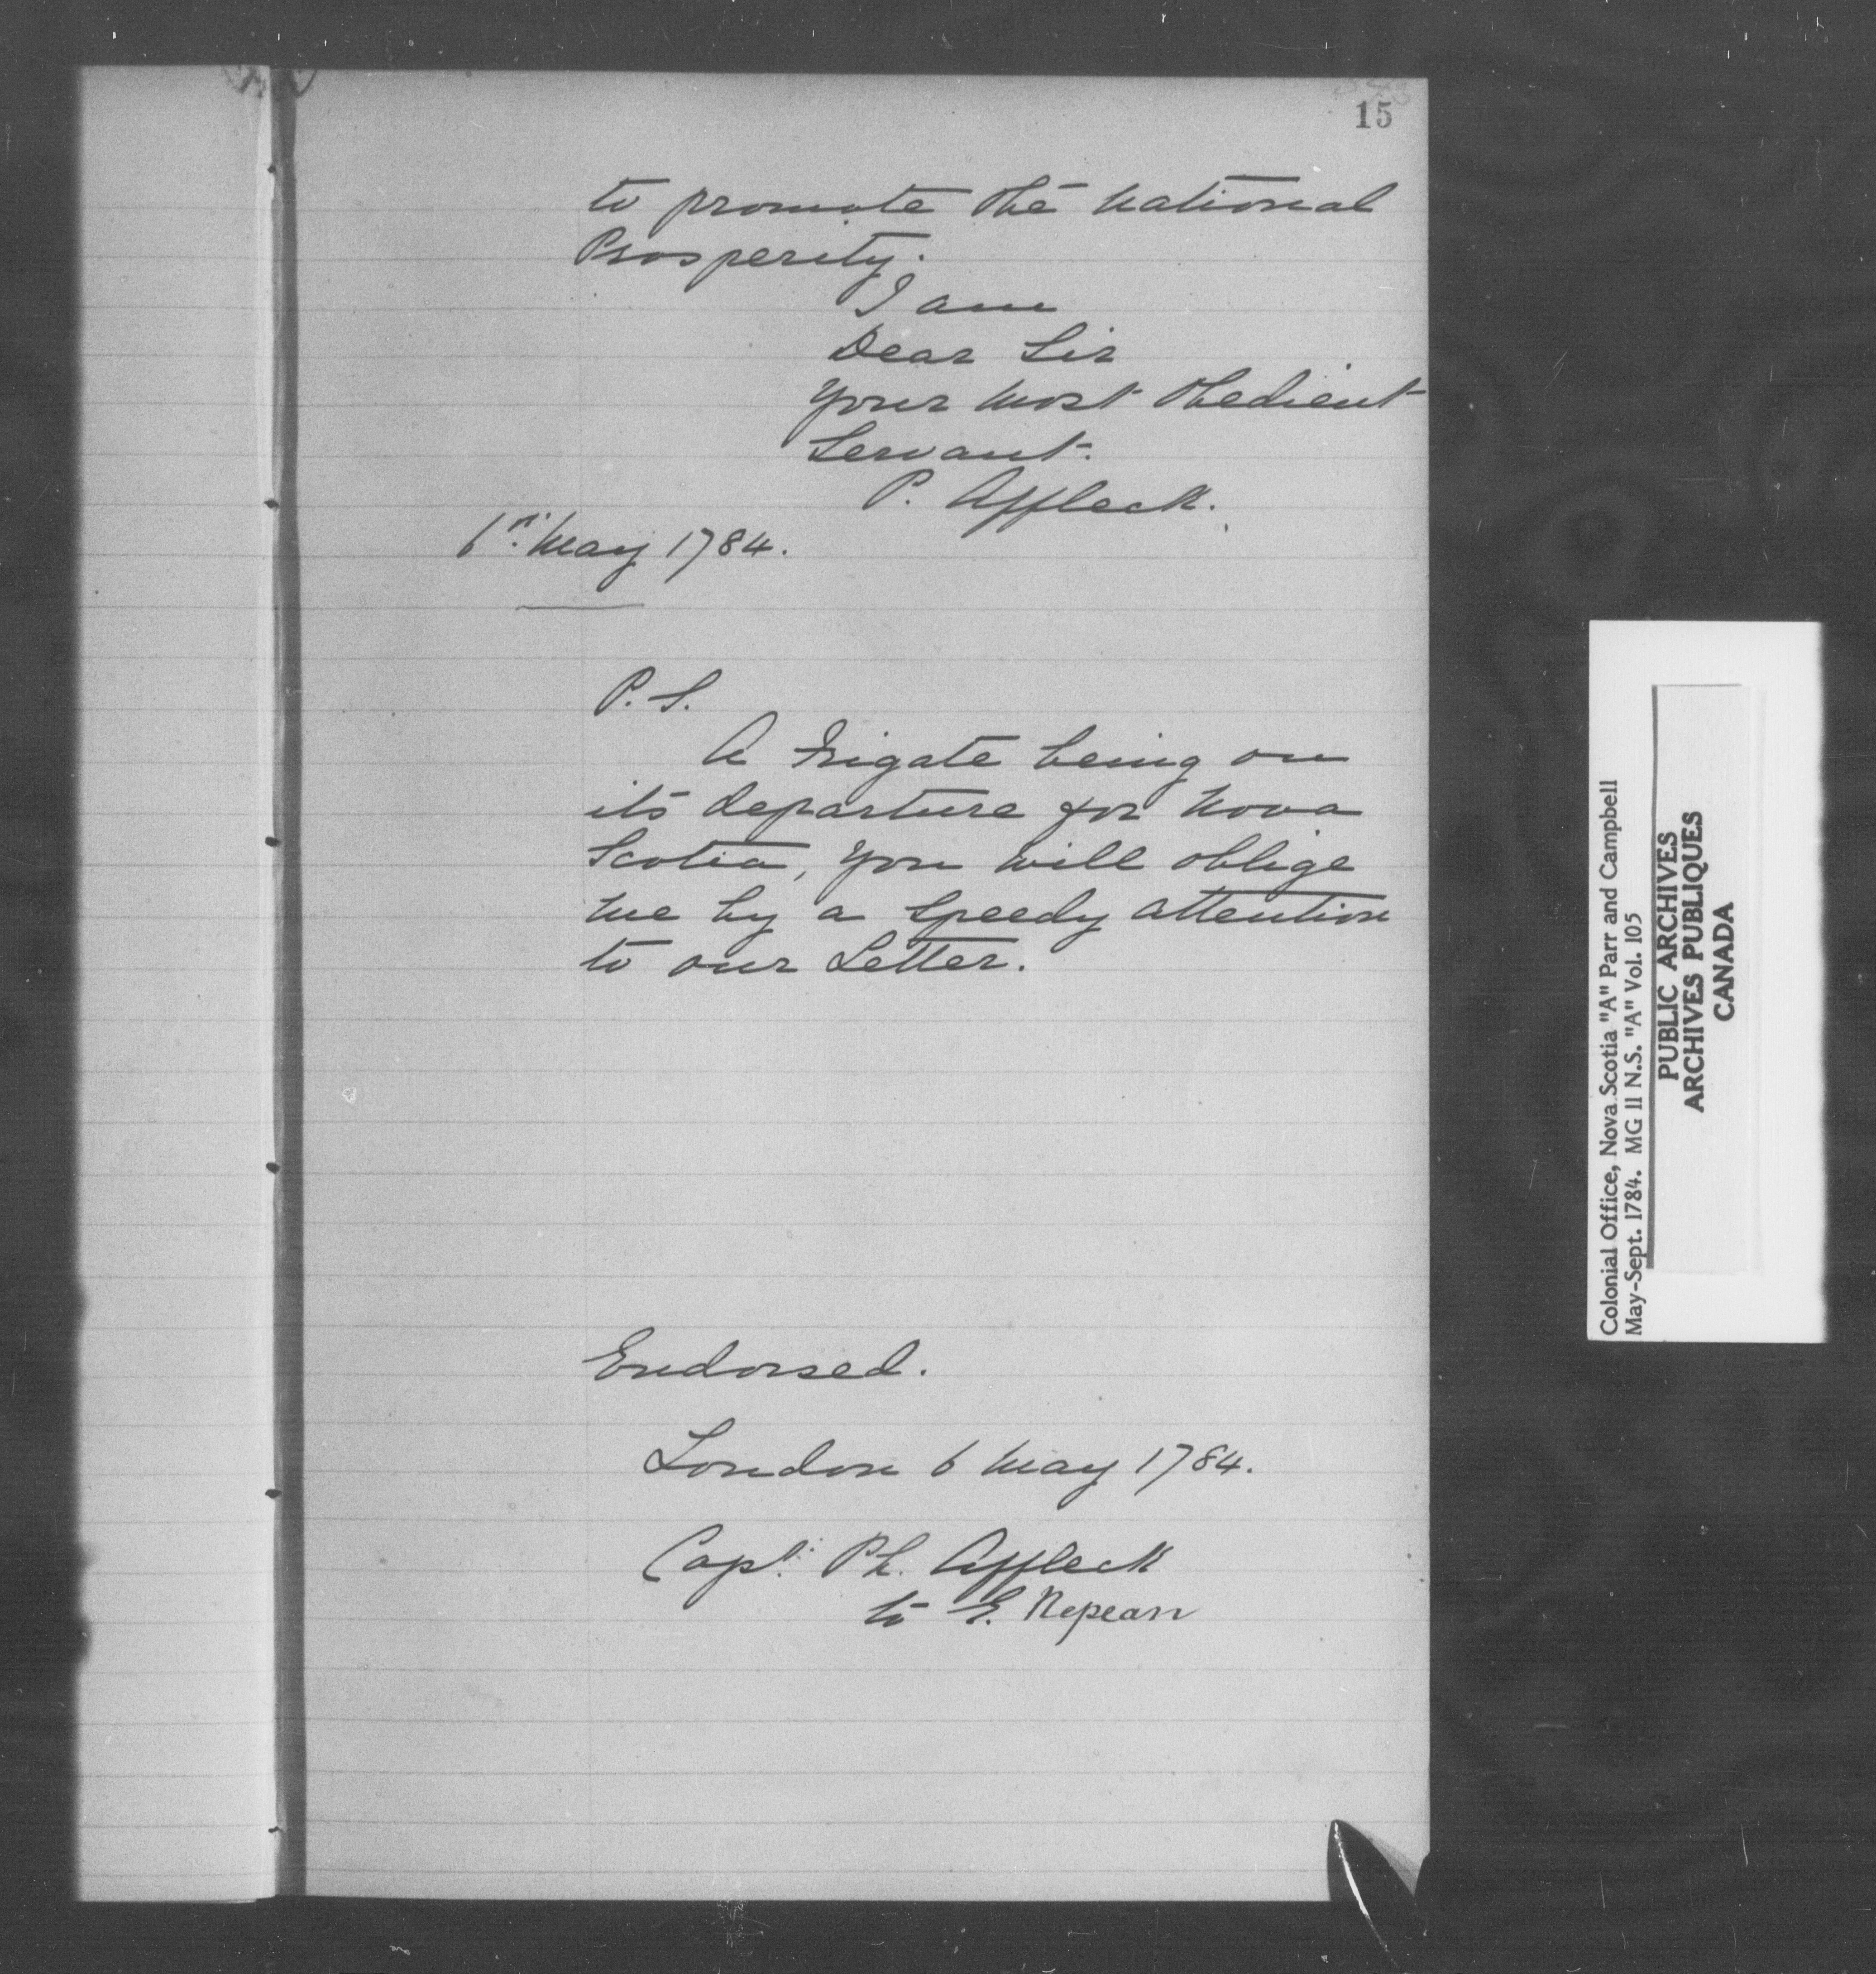 15
to promote the National
Prosperity.
I am
Dear Sir
Your Most Obedient
Servant.
P. Affleck.
6th. May 1784.
P. S.
A Frigate being on
its departure for Nova
Scotia, you will oblige
me by a speedy attention
to our Letter.
Endorsed.
London 6 May 1784.
Capt. Ph. Affleck
to E. Nepean
Colonial Office, Nova Scotia "A" Parr and Campbell
May-Sept. 1784. MG 11 N.S. "A" Vol. 105
PUBLIC ARCHIVES
ARCHIVES PUBLIQUES
CANADA